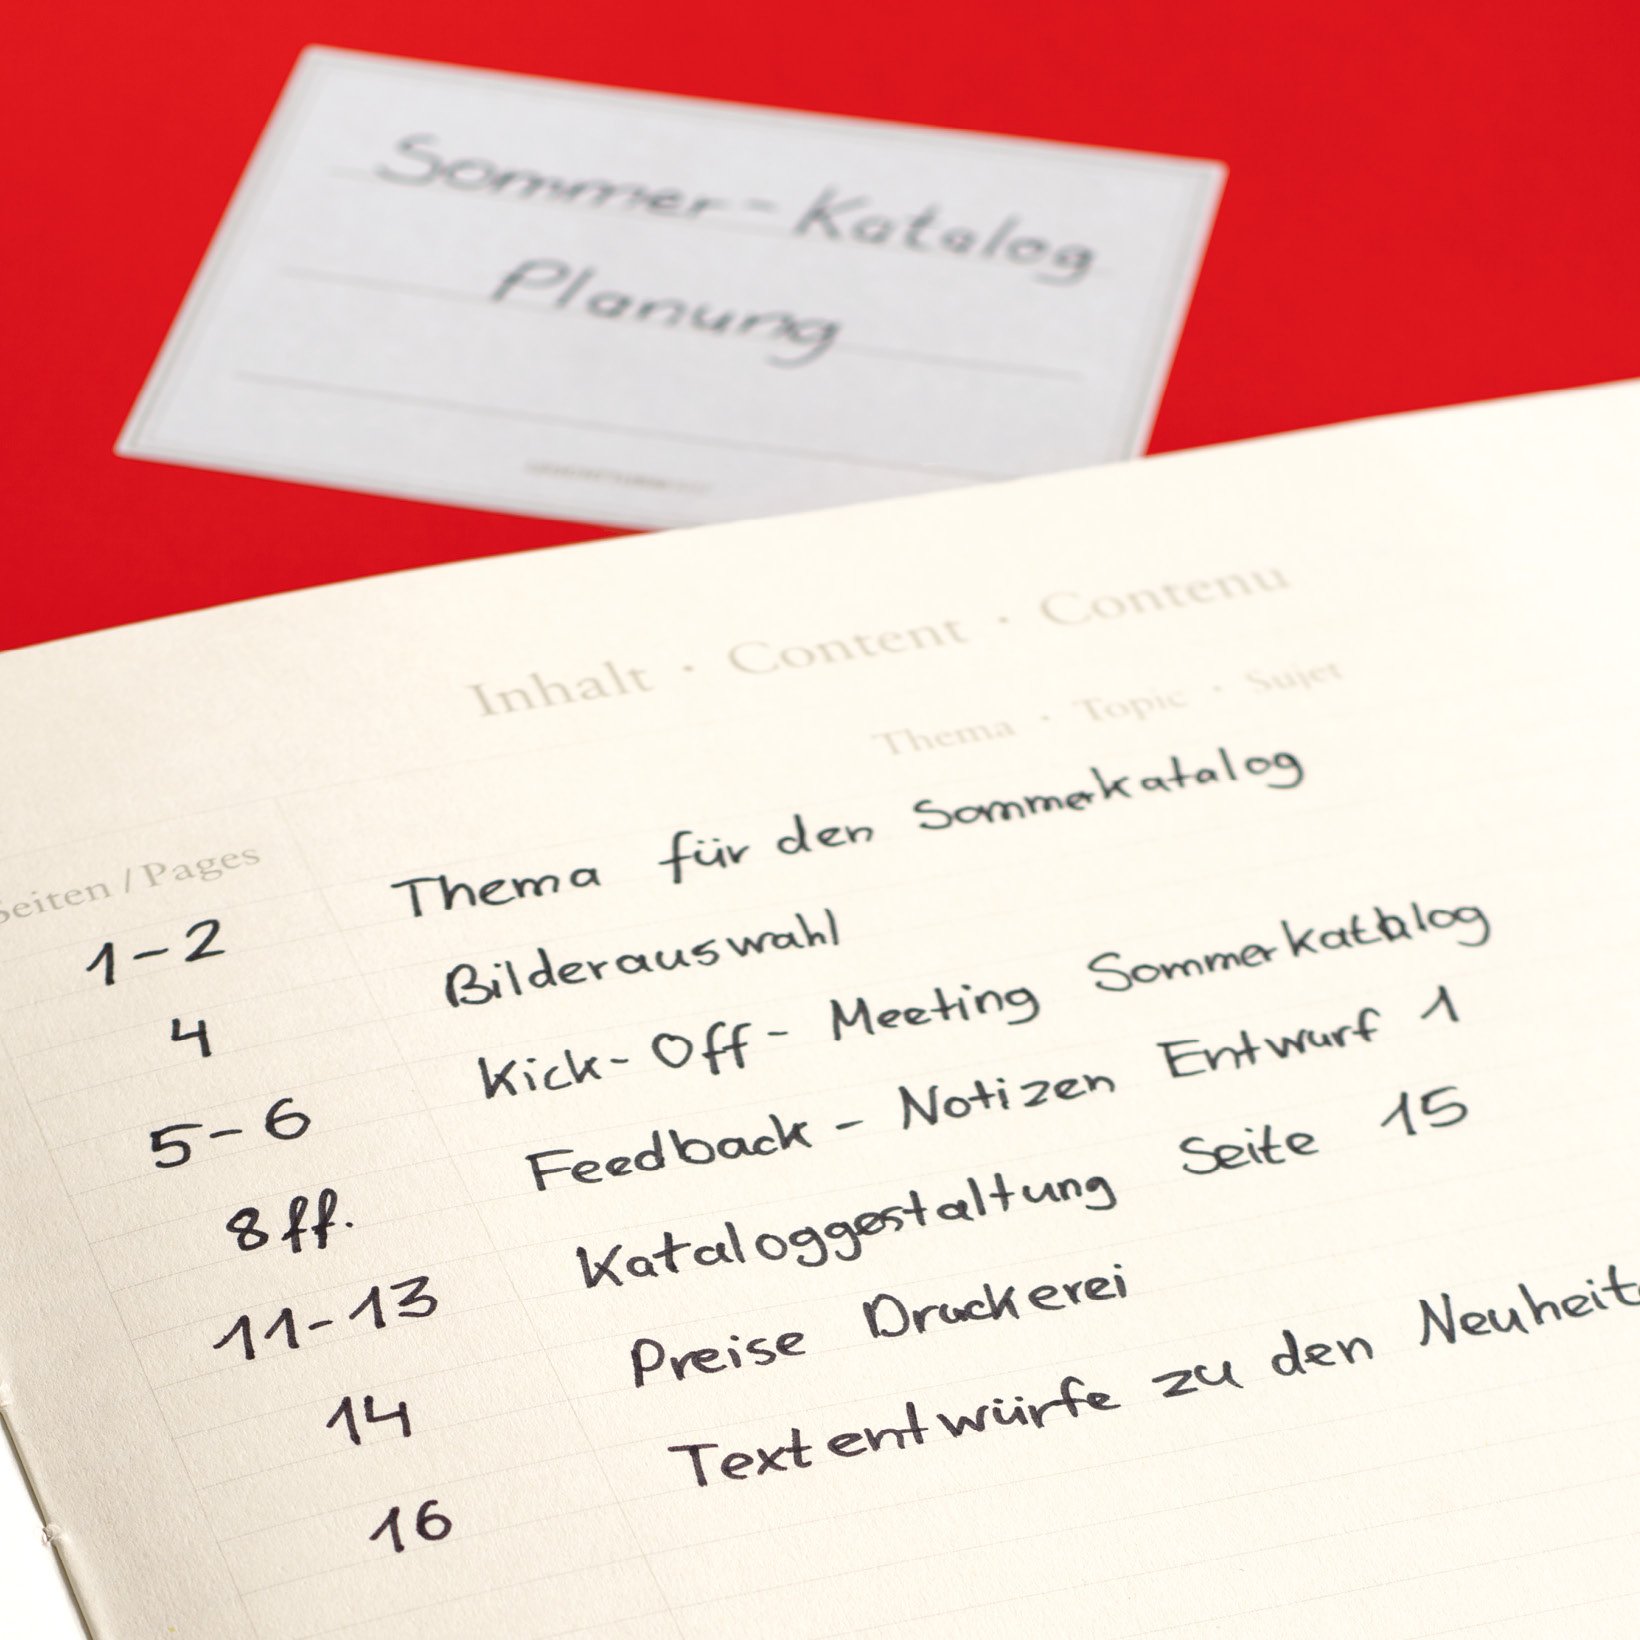 Sommer-Katalog
Planung
Inhalt · Content · Contenu
Seiten / Pages Thema · Topic · Sujet
1-2 Thema für den Sommerkatalog
4 Bilderauswahl
5-6 Kick-Off-Meeting Sommerkatalog
8ff. Feedback-Notizen Entwurf 1
11-13 Kataloggestaltung Seite 15
14 Preise Druckerei
16 Textentwürfe zu den